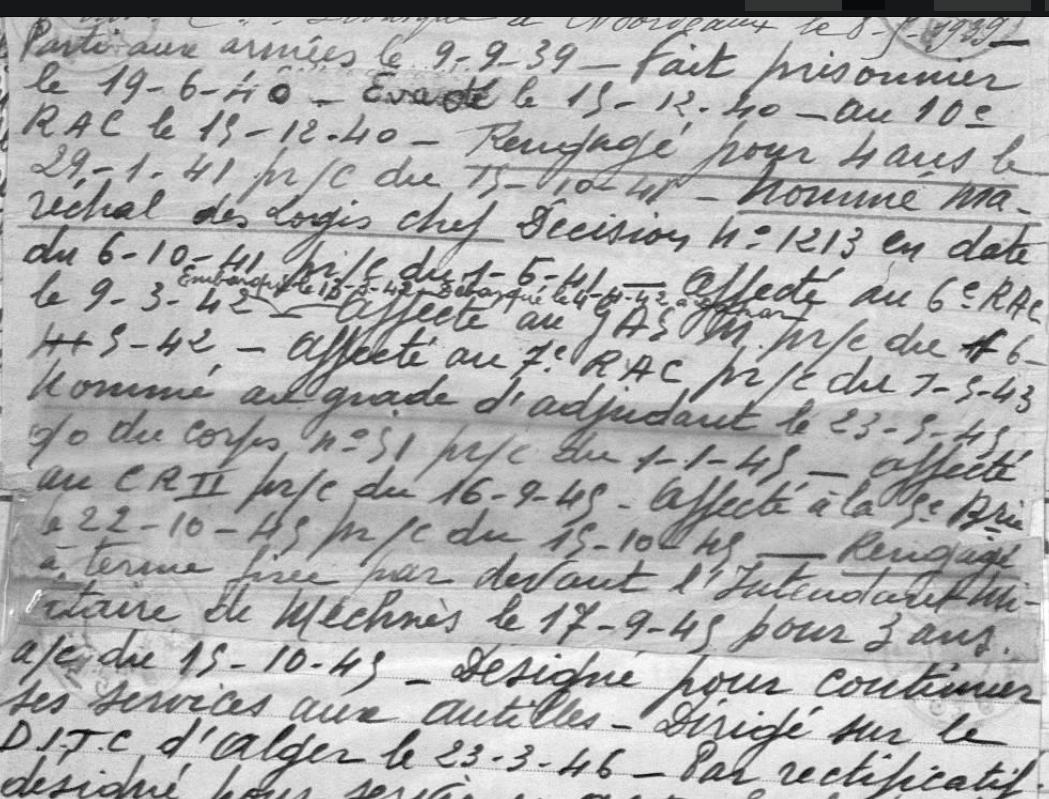 à Bordeaux le 8-9-1939 —
Parti aux armées le 9-9-39 — Fait prisonnier
le 19-6-40 — Evadé le 15-12-40 — au 10e
RAC le 15-12-40 — Rengagé pour 4 ans le
29-1-41 pr/c du 15-10-41 — Nommé Ma-
réchal des Logis chef Décision n° 1213 en date
du 6-10-41 pr/c du 1-5-41 — Affecté au 6e RAC
Embarqué le Débarqué le 4-4-42 à
le 9-3-42 — Affecté au pr/c du 6-
5-42 — Affecté au 7e RAC pr/c du 7-5-43
Nommé au grade d'adjudant le 23-5-45
o/o du corps n° 51 pr/c du 1-1-45 — Affecté
au CR II pr/c du 16-9-45 — Affecté à la 5e Brie
le 22-10-45 pr/c du 15-10-45 — Rengagé
à terme fixe par devant l'Intendant Mi-
litaire de Mechnès le 17-9-45 pour 3 ans.
a/c du 15-10-45 — Désigné pour continuer
ses services aux Antilles — Dirigé sur le
D.I.T.C d'Alger le 23-3-46 — Par rectificatif.
désigné pour servir